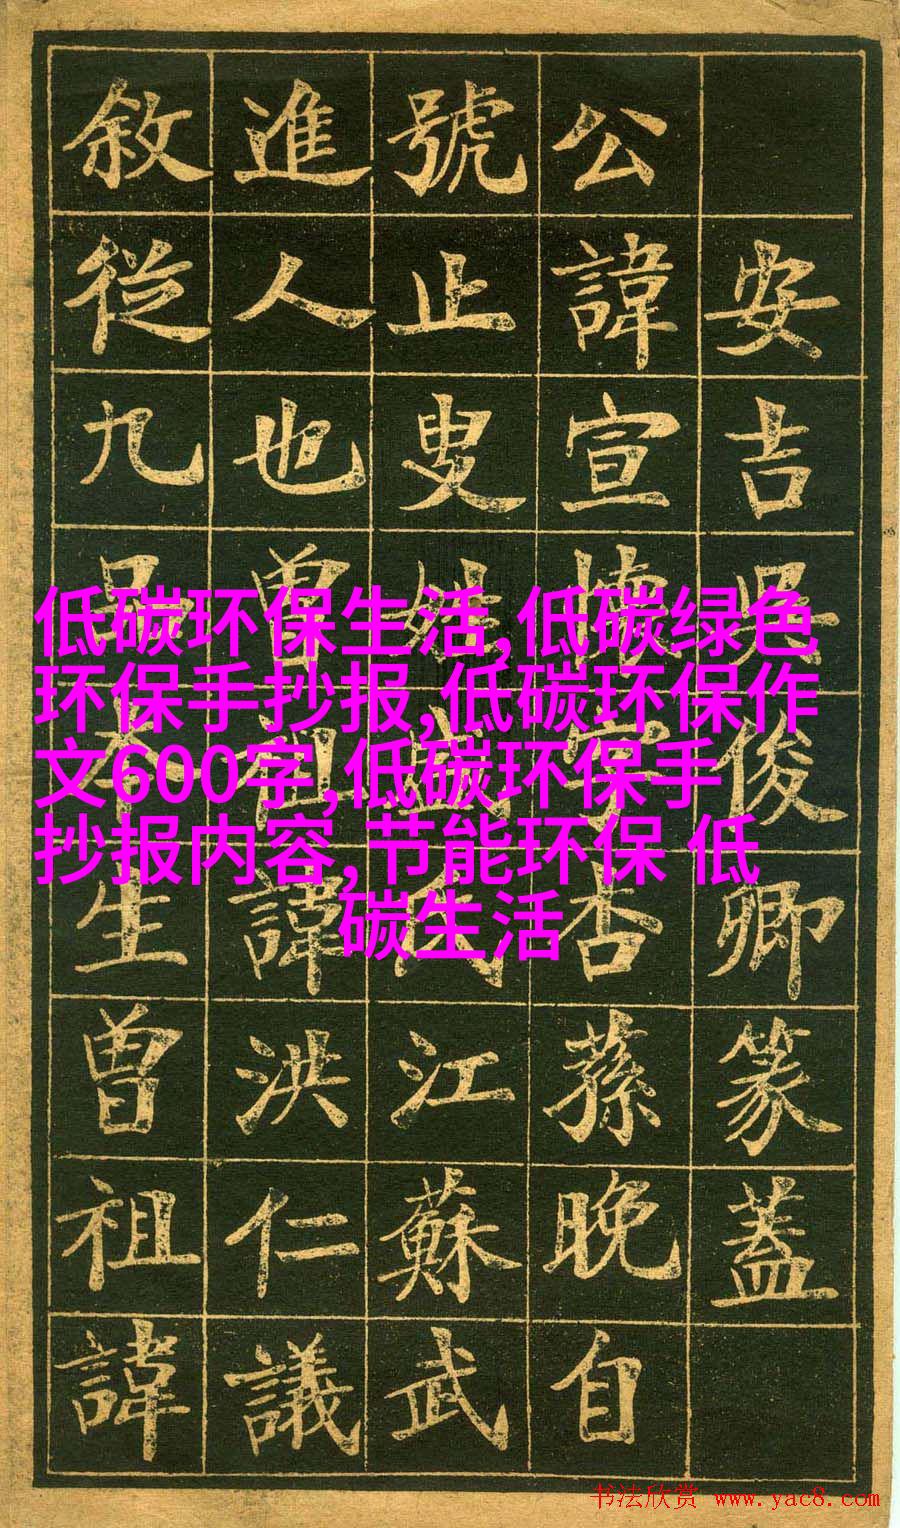 安吉吳俊卿篆蓋
公諱宣懷字杏蓀晚自
號止叟姓盛氏江蘇武
進人也曾祖諱洪仁議
敘從九品本生曾祖諱
低碳环保生活,低碳绿色
环保手抄报,低碳环保作
文600字,低碳环保手
抄报内容,节能环保 低
碳生活
书法欣赏 www.yac8.com